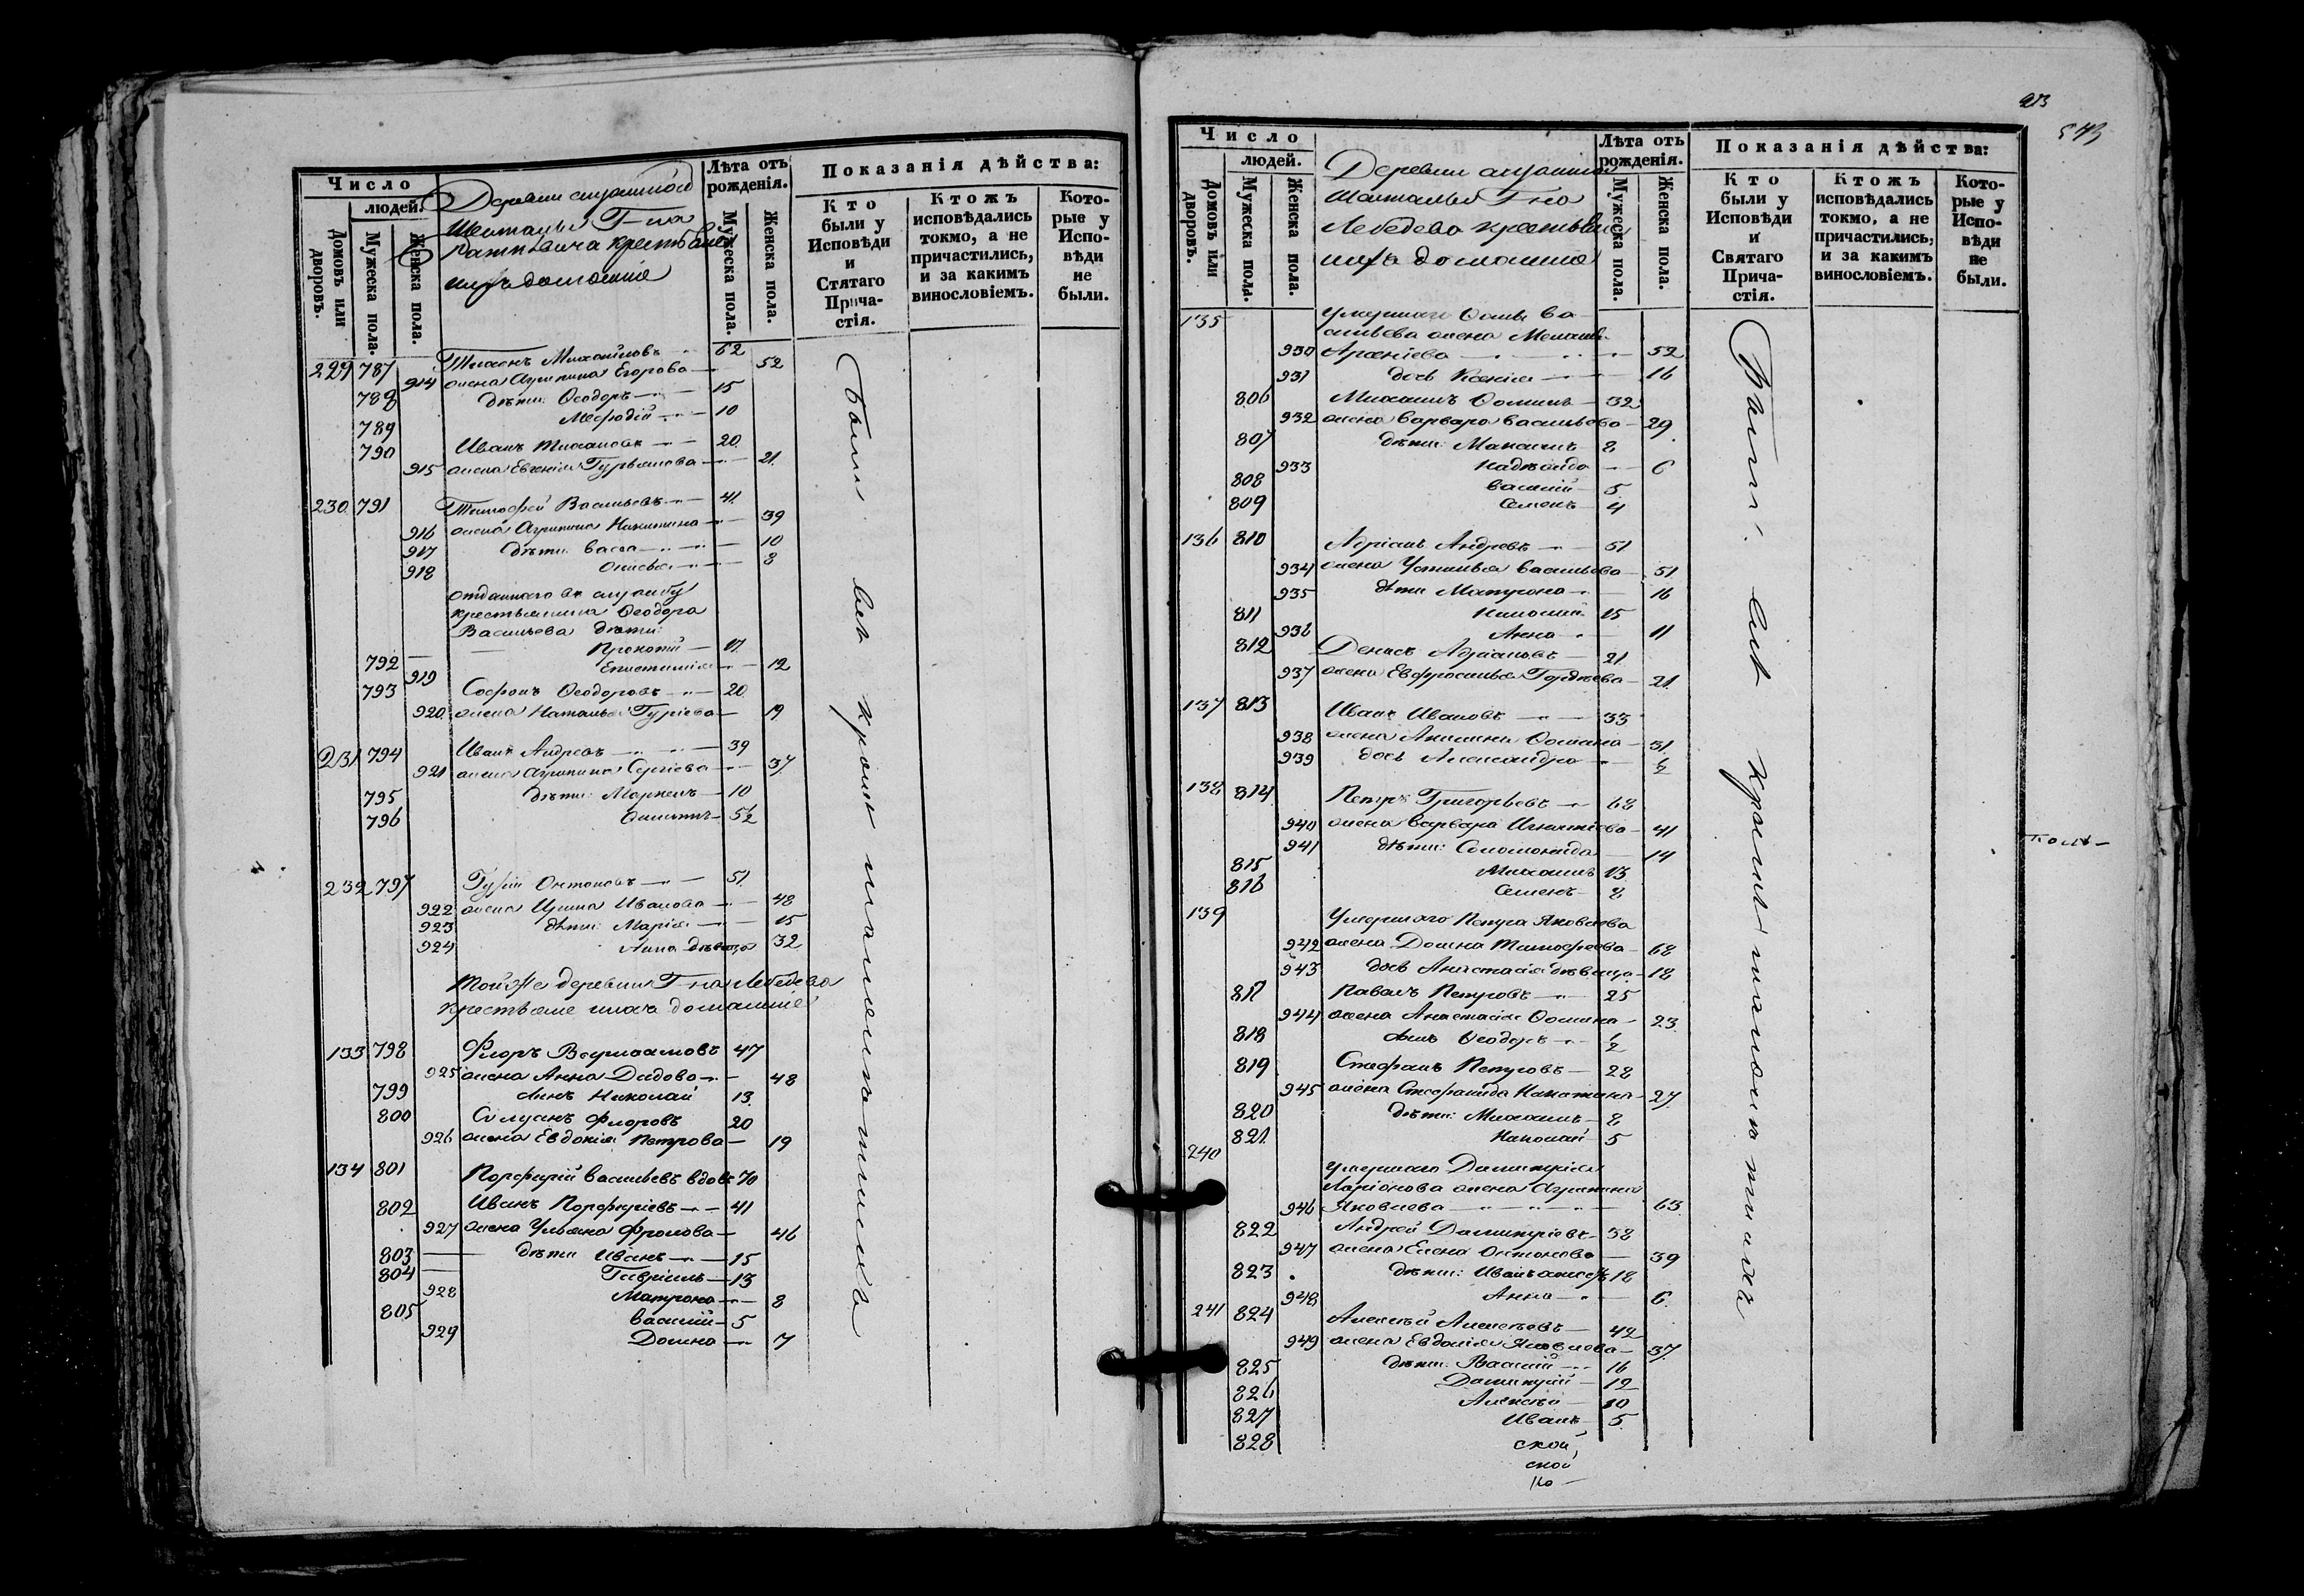 Число
людей.
Домовъ или дворовъ.
Мужеска пола.
Женска пола.
Деревни
крестьяне
ихъ домашніе
Лѣта отъ рожденія.
Мужеска пола.
Женска пола.
Показанія дѣйства:
Кто были у Исповѣди и Святаго Причастія.
Ктожъ исповѣдались токмо, а не причастились, и за какимъ винословіемъ.
Которые у Исповѣди не были.
229 787 Тихонъ Михайловъ 62
914 жена Агрипина Егорова 52
788 дѣти: Ѳеодоръ 15
789 Меѳодій 10
790 Иванъ Тихановъ 20
915 жена Евгенія Гурьянова 21
230 791 Тимоѳей Васильевъ 41
916 жена Агрипина Никитина 39
917 дѣти: Васса 10
918 Анисья 8
отданнаго въ службу
крестьянина Ѳеодора
Васильева дѣти:
792 Прокопій 17
919 Епистимія 12
793 Софронъ Ѳеодоровъ 20
920 жена Наталья Гуріева 19
231 794 Иванъ Андреевъ 39
921 жена Агрипина Сергіева 37
795 дѣти: Маркелъ 10
796
232 797 Гурій Онтоновъ 51
922 жена Ирина Иванова 48
923 дѣти: Марія 15
924 Анна дѣвица 32
Той же деревни Г-на Лебедева
крестьяне и ихъ домашніе
133 798 Флоръ 47
925 жена Анна 48
799 сынъ Николай 13
800 Силуанъ Флоровъ 20
926 жена Евдокія Петрова 19
134 801 Порфирій Васильевъ вдовъ 70
802 Иванъ Порфиріевъ 41
927 жена Ульяна Фролова 46
803 дѣти Иванъ 15
804 Гавріилъ 13
928 Матрона 8
805 Василій 5
929 Домна 7
Были: всѣ кромѣ малолѣтнихъ
213
543
Число
людей.
Домовъ или дворовъ.
Мужеска пола.
Женска пола.
Деревни
Г-на
Лебедева крестьяне
ихъ домашніе
Лѣта отъ рожденія.
Мужеска пола.
Женска пола.
Показанія дѣйства:
Кто были у Исповѣди и Святаго Причастія.
Ктожъ исповѣдались токмо, а не причастились, и за какимъ винословіемъ.
Которые у Исповѣди не были.
135 умершаго Ѳомы Ва-
сильева жена
930 52
931 дочь Ксенія 16
806 Михаилъ Ѳоминъ 32
932 жена Варвара Васильева 29
807 дѣти: Максимъ 8
933 Надежда 6
808 Василій 5
809 Семенъ 4
136 810 Адріанъ Андреевъ 51
934 жена Устинья Васильева 51
935 дѣти Матрона 16
811 Николай 15
936 Анна 11
812 Денисъ Адріановъ 21
937 жена Евфросинья Гордѣева 21
137 813 Иванъ Ивановъ 33
938 жена Акилина Ѳомина 31
939 дочь Александра
138 814 Петръ Григорьевъ 68
940 жена Варвара Игнатіева 41
941 дѣти: Соломонида 14
815 Михаилъ 13
816 Семенъ 8
139 Умершаго Петра Яковлева
942 жена Домна Тимоѳеева 68
943 дочь Анастасія дѣвица 18
817 Павелъ Петровъ 25
944 жена Анастасія Ѳомина 23
818 сынъ Ѳеодоръ ½
819 Стефанъ Петровъ 28
945 жена Стефанида 27
820 дѣти: Михаилъ 8
821 Николай 5
240 умершаго Димитрія
Ларіонова жена Агрипина
946 Яковлева 63
822 Андрей Димитріевъ 38
947 жена Елена Онтонова 39
823 дѣти: Иванъ 18
948 Анна 6
241 824 Алексѣй Алексѣевъ 42
949 жена Евдокія Яковлева 37
825 дѣти: Василій 16
826 Димитрій 12
827 Алексѣй 10
828 Иванъ 5
ской,
ской
Были: всѣ кромѣ малолѣтнихъ